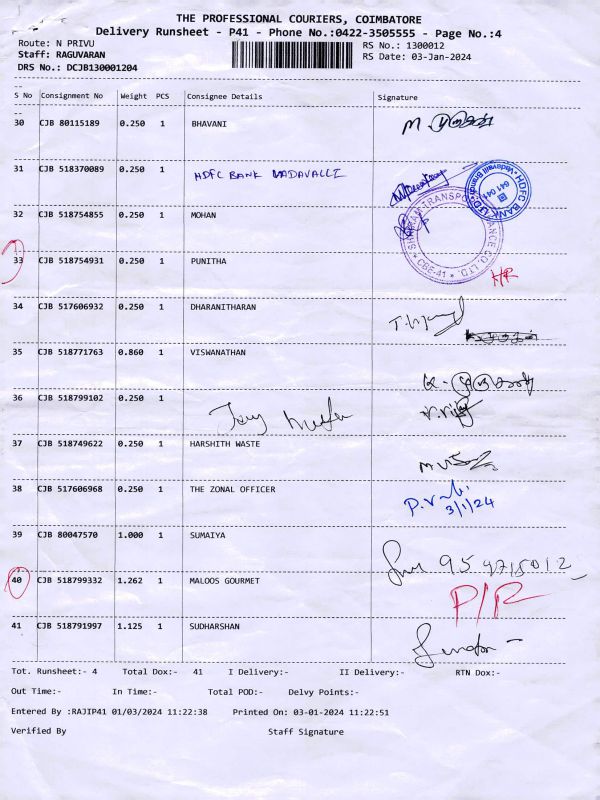 THE PROFESSIONAL COURIERS, COIMBATORE
Delivery Runsheet - P41 - Phone No.:0422-3505555 - Page No.:4
Route: N PRIVU
RS No.: 1300012
Staff: RAGUVARAN
RS Date: 03-Jan-2024
DRS No.: DCJB130001204
S No Consignment No Weight PCS Consignee Details Signature
30 CJB 80115189 0.250 1 BHAVANI
31 CJB 518370089 0.250 1 HDFC BANK VADAVALLI
HDFC BANK LTD
Vadavalli Branch
641 041
32 CJB 518754855 0.250 1 MOHAN
CBE-41
33 CJB 518754931 0.250 1 PUNITHA
34 CJB 517606932 0.250 1 DHARANITHARAN
35 CJB 518771763 0.860 1 VISWANATHAN
36 CJB 518799102 0.250 1
37 CJB 518749622 0.250 1 HARSHITH WASTE
38 CJB 517606968 0.250 1 THE ZONAL OFFICER
3/1/24
39 CJB 80047570 1.000 1 SUMAIYA
40 CJB 518799332 1.262 1 MALOOS GOURMET P/R
41 CJB 518791997 1.125 1 SUDHARSHAN
Tot. Runsheet:- 4 Total Dox:- 41 I Delivery:- II Delivery:- RTN Dox:-
Out Time:- In Time:- Total POD:- Delvy Points:-
Entered By :RAJIP41 01/03/2024 11:22:38 Printed On: 03-01-2024 11:22:51
Verified By Staff Signature